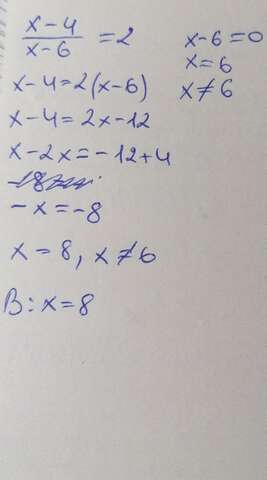 x-4/x-6 = 2
x-6=0
x=6
x≠6
x-4=2(x-6)
x-4=2x-12
x-2x=-12+4
-x=-8
x=8, x≠6
В: x=8